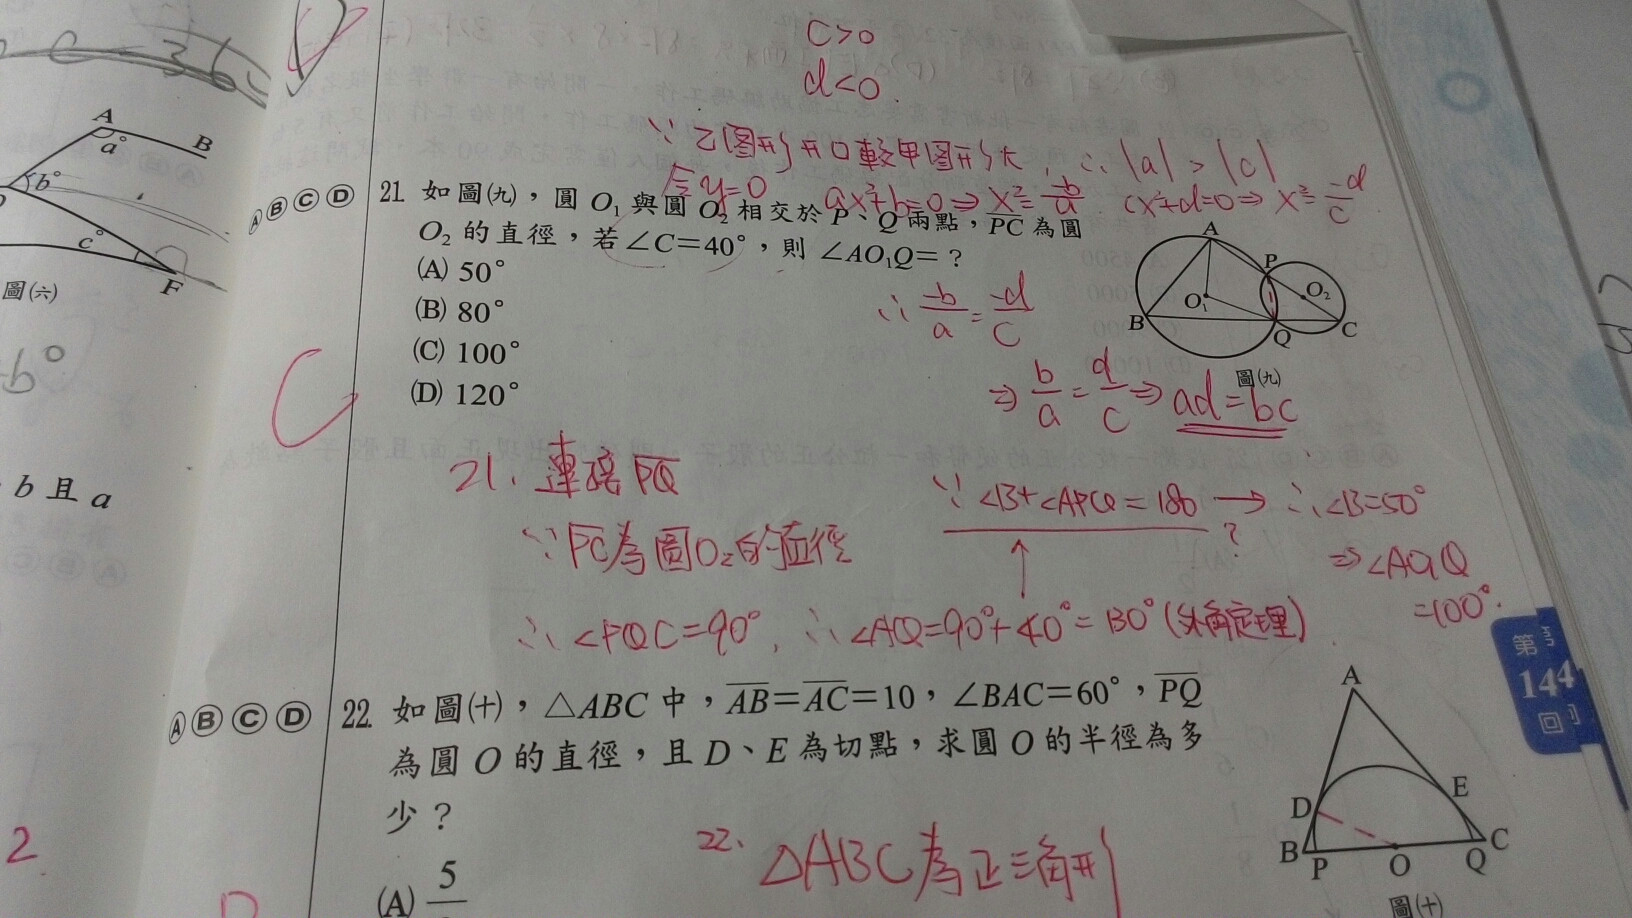 C>0
d<0
∵乙圖形開口較甲圖形大, ∴|a|>|c|
令y=0 ax²+b=0⇒x²=-b/a cx²+d=0⇒x²=-d/c
A
B
a°
b°
c°
F
圖(六)
-b°
b且a
2
Ⓐ Ⓑ Ⓒ Ⓓ 21. 如圖(九),圓 O₁ 與圓 O₂ 相交於 P、Q 兩點,PC 為圓
O₂ 的直徑,若∠C=40°,則 ∠AO₁Q=?
(A) 50°
(B) 80°
(C) 100°
(D) 120°
C
∴ -b/a = -d/c
⇒ b/a = d/c ⇒ ad=bc
A
P
O₁
O₂
B
Q
C
圖(九)
21. 連接PQ
∵PC為圓O₂的直徑
∴∠PQC=90°, ∴∠APQ=90°+40°=130°(外角定理)
∵∠B+∠APQ=180 → ∴∠B=50°
?
⇒∠AO₁Q
=100°.
第
144
回
Ⓐ Ⓑ Ⓒ Ⓓ 22. 如圖(十),△ABC 中,AB=AC=10,∠BAC=60°,PQ
為圓 O 的直徑,且 D、E 為切點,求圓 O 的半徑為多
少?
(A) 5
22. △ABC為正三角形
A
D
E
B
P
O
Q
C
圖(十)